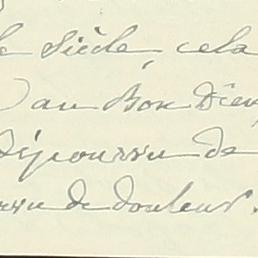 le siècle, cela
au Bon Dieu
dépourvu de
de douleur.